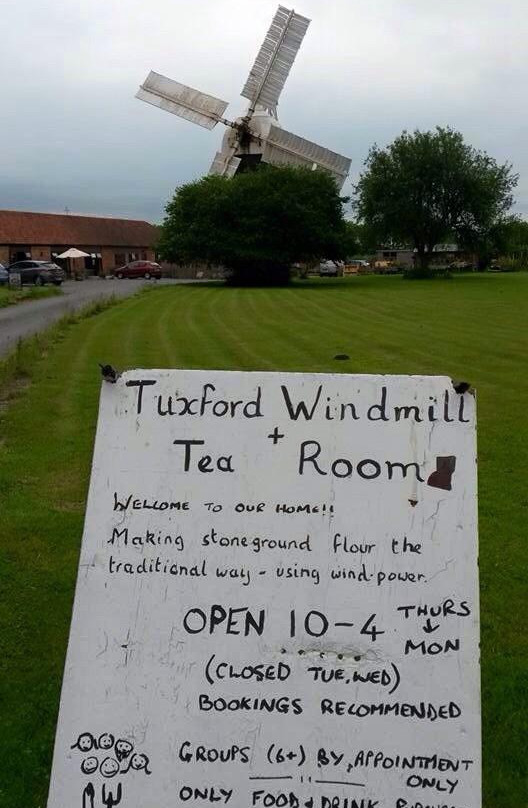 Tuxford Windmill
+
Tea Room
WELCOME TO OUR HOME!!
Making stoneground flour the
traditional way - using wind-power.
OPEN 10-4 THURS
↓
MON
(CLOSED TUE, WED)
BOOKINGS RECOMMENDED
GROUPS (6+) BY APPOINTMENT
ONLY
ONLY FOOD & DRINK